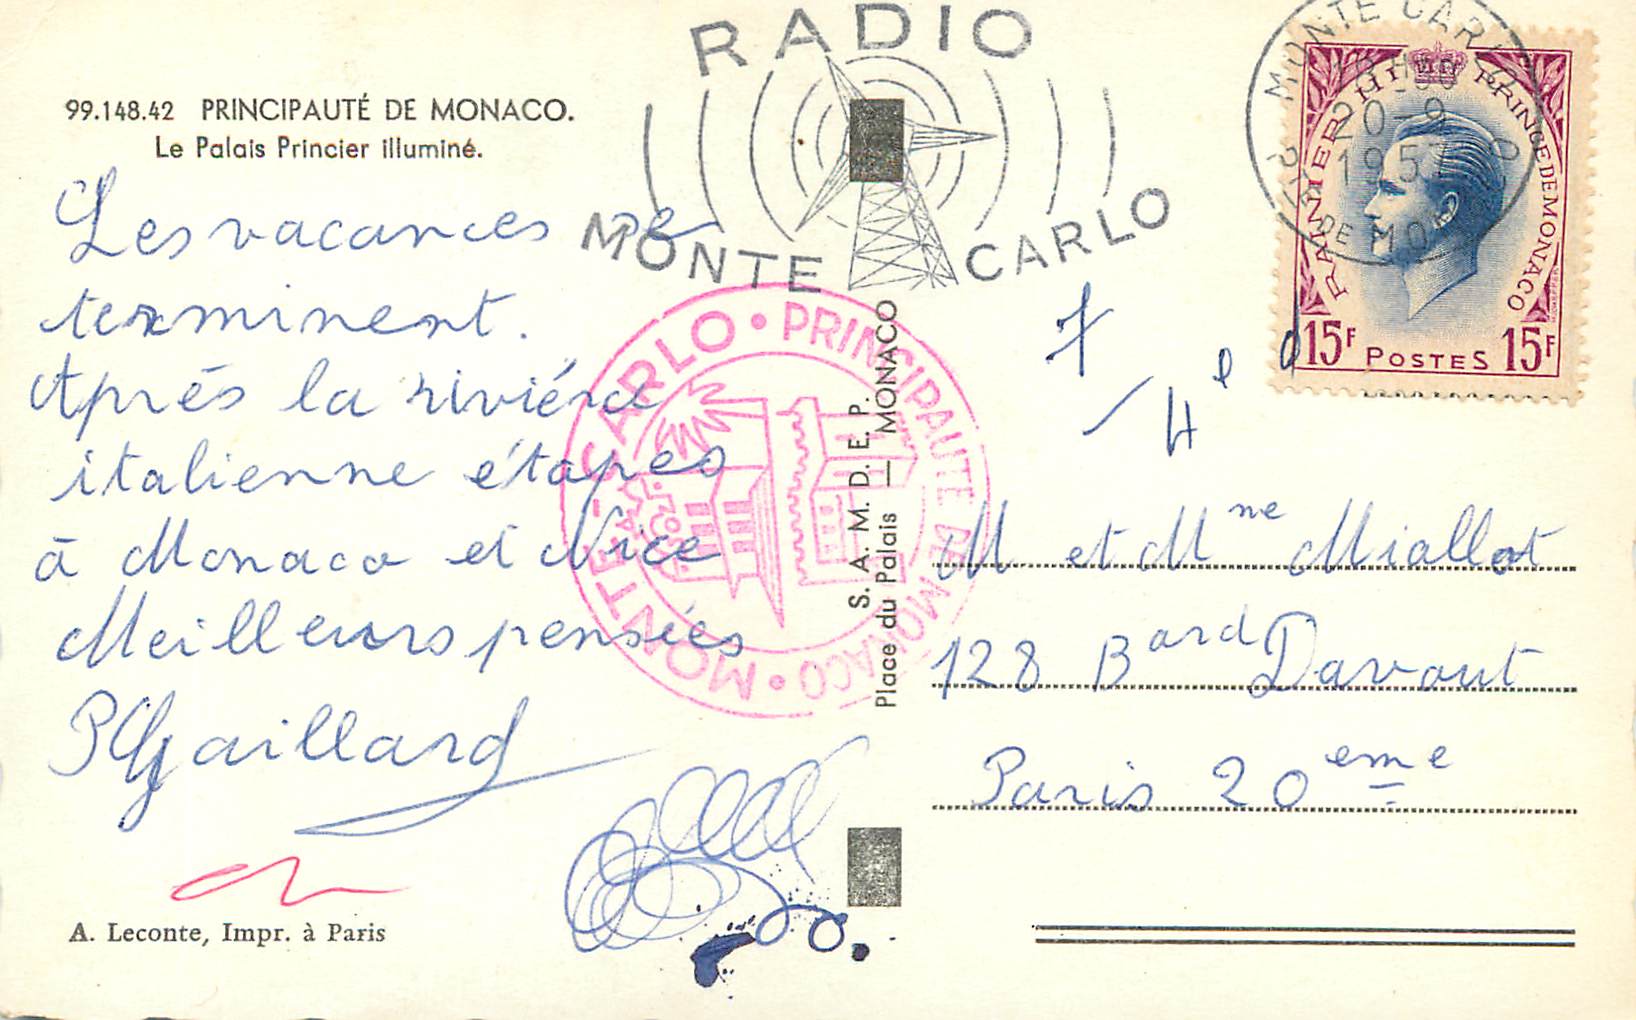 99.148.42 PRINCIPAUTÉ DE MONACO.
Le Palais Princier illuminé.
Les vacances se
terminent.
Aprés la riviére
italienne étapes
à Monaco et Nice
Meilleurs pensées
PGaillard
A. Leconte, Impr. à Paris
RADIO
MONTE CARLO
MONTE-CARLO • PRINCIPAUTE DE MONACO •
S. A. M. D. E. P.
Place du Palais — MONACO
MONTE CARLO
20-9
1957
RAINIER III PRINCE DE MONACO
15F POSTES 15F
M et Mme Miallot
128 Bard Davout
Paris 20eme